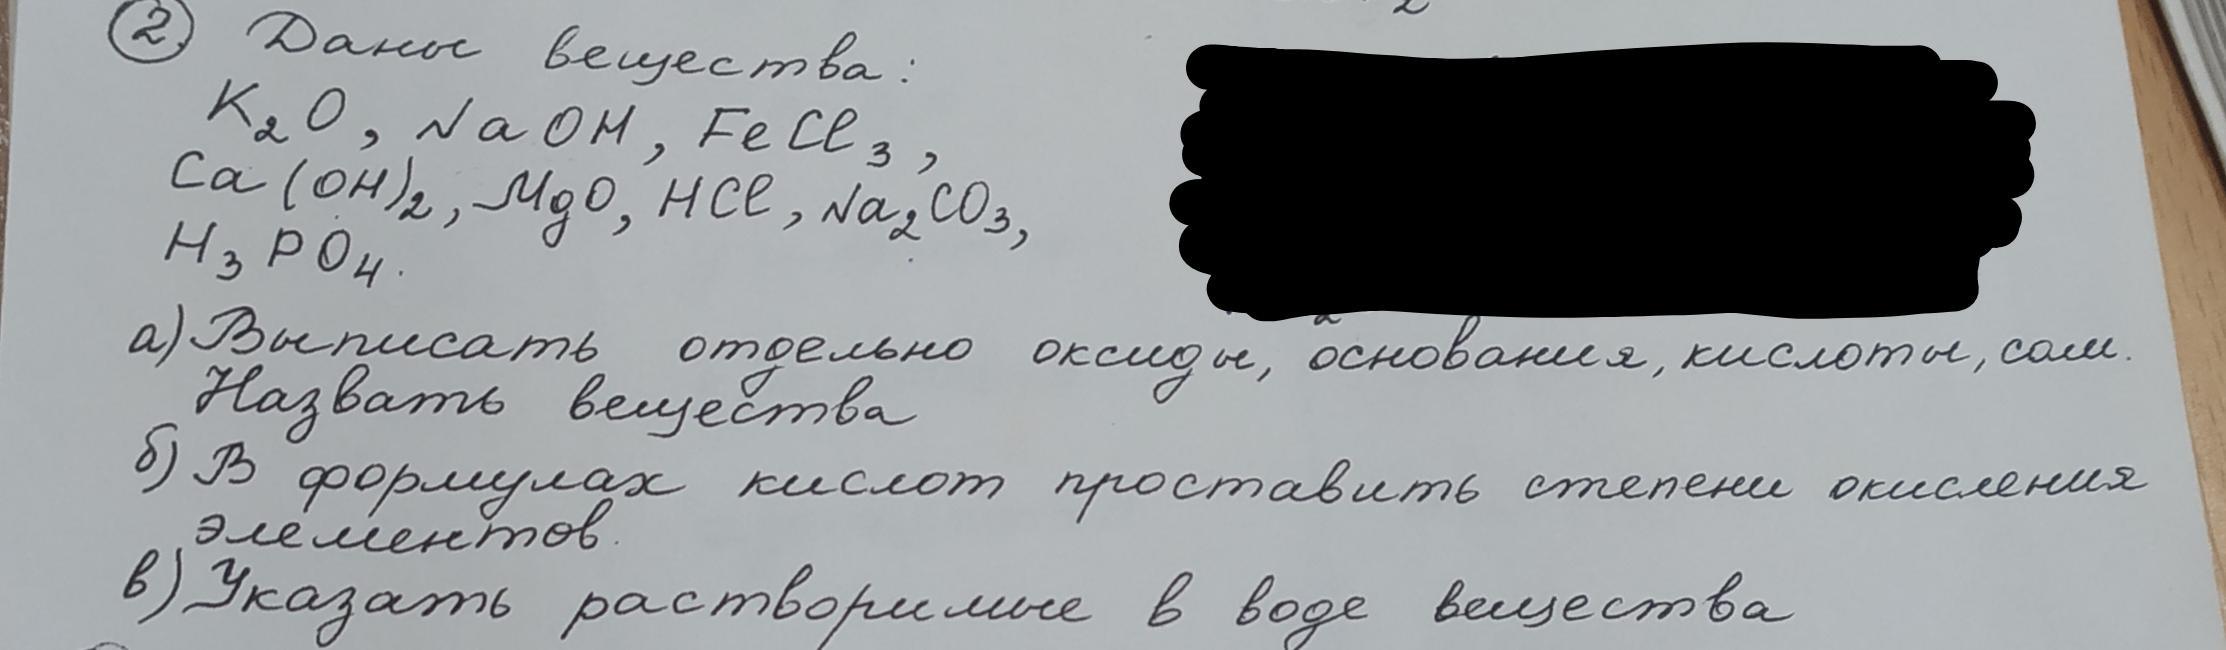 2. Даны вещества:
K₂O, NaOH, FeCl₃,
Ca(OH)₂, MgO, HCl, Na₂CO₃,
H₃PO₄.
а) Выписать отдельно оксиды, основания, кислоты, соли.
Назвать вещества
б) В формулах кислот проставить степени окисления
элементов.
в) Указать растворимые в воде вещества